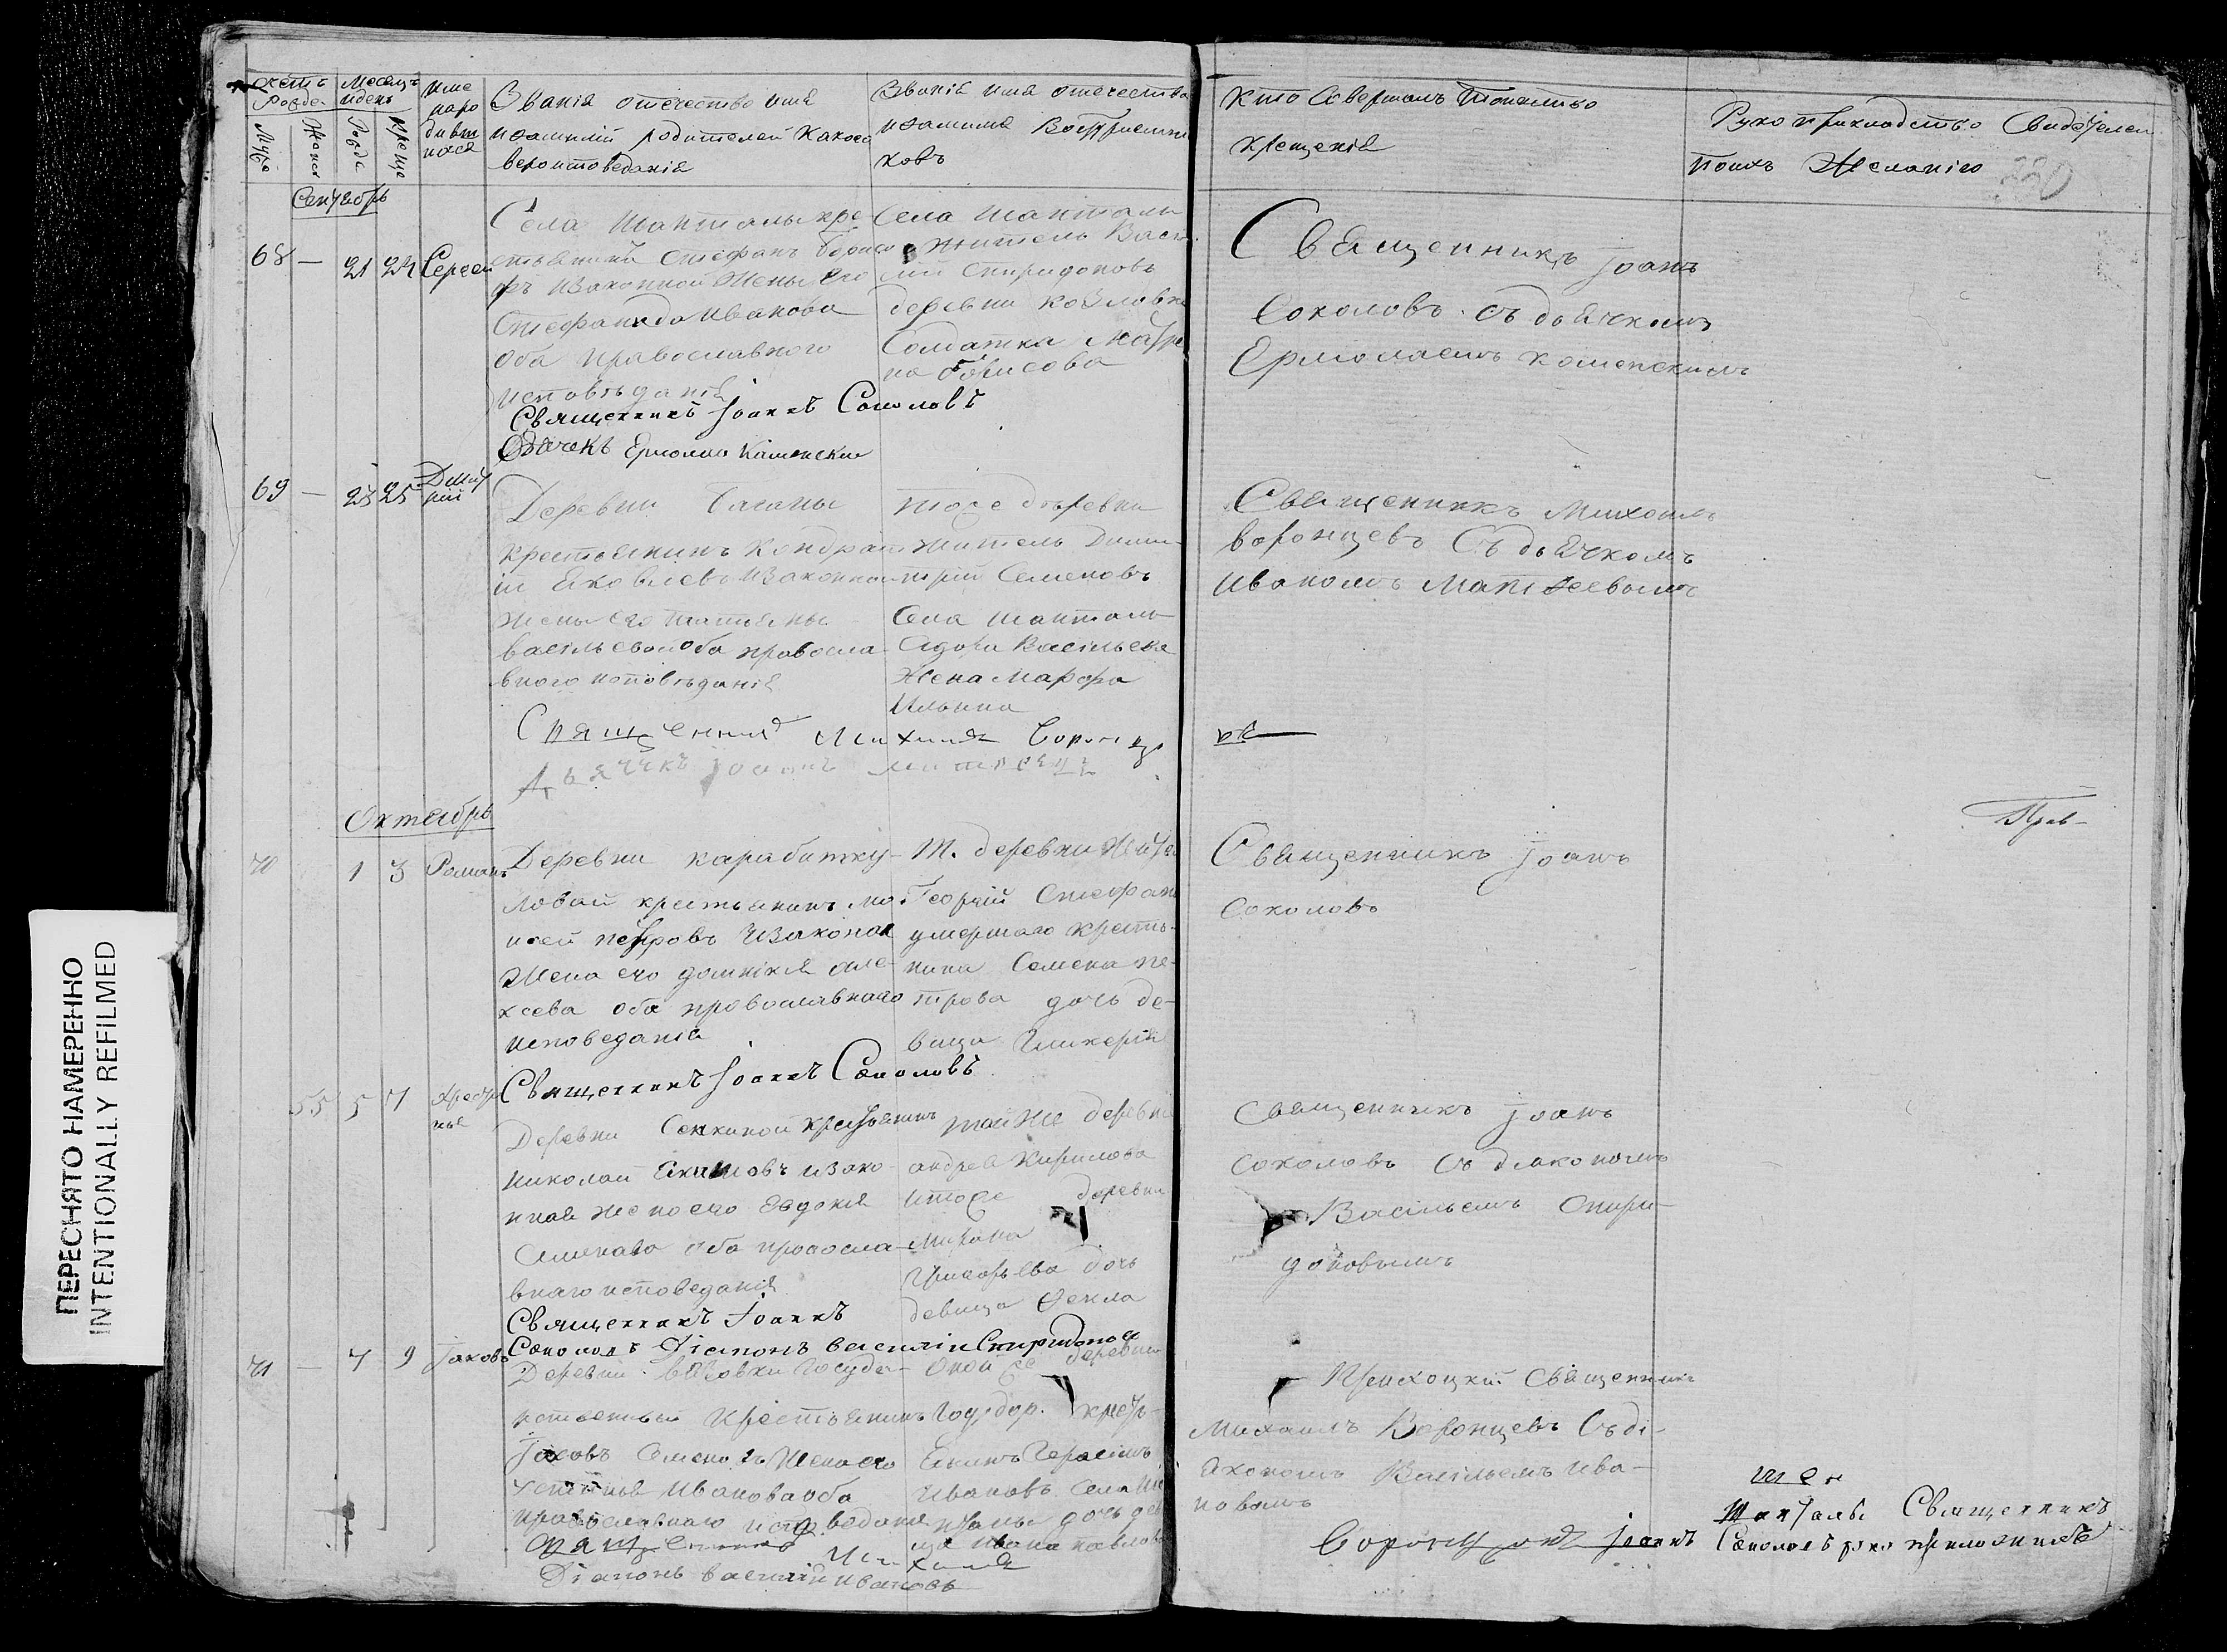 Счетъ Рожде.
Месецъ и день
Име наро дивш ихся
Званiя отечество имя и фамилiй родителей Какова вероисповеданiя
Званiя имя отечество и фамилия Воспрiемни ковъ
Кто Совершалъ Таинство Крещенiя
Рукоприкладство Свидетелей по ихъ Желанiю
Муж
Женск
Рожд
Креще
230
Сентябрь
68 — 21 24 Сергей
Села Шанталы кре-
стьянинъ Стефанъ
Изаконной Жены его
Стефанида Иванова
оба православного
исповѣданiя
Священникъ Iоаннъ Соколовъ
Дьячекъ Ермолай Каменский
Села Шанталы
житель Васи
лiй Спиридоновъ
деревни Козловки
Солдатка Матре
на Борисова
Священникъ Iоанъ
Соколовъ съ дьячкомъ
Ермолаемъ Каменскимъ
69 — 23 25 Димитрiй
Деревни
крестьянинъ Кондрат
iй Яковлевъ Изаконной
жены его Татьяны
Васильевой оба правосла
вного исповѣданiя
Священникъ Михаилъ Воронцо
Дьячекъ Iоаннъ Матвеевъ
тоже деревни
житель Дими
трiй Семеновъ
Села Шанталы
Сидора Васильева
Жена Марфа
Ильина
Священникъ Михаилъ
Воронцевъ Съ дьячкомъ
Иваномъ Матвеевымъ
въ
Октябрь
Прав-
70 1 3 Романъ
Деревни карабитку-
ловой крестьянинъ Мо
исей Петровъ Изаконая
Жена его домнiкiя Але
ксева оба православнаго
исповеданiя
Священникъ Iоаннъ Соколовъ
Т. деревни
Георгiй Стефан
умершаго кресть-
нина Семена Пе-
трова дочь де-
вица Гликерiя
Священникъ Iоанъ
Соколовъ
55 5 7
Деревни Секкиной крестьянинъ
Николай Екимовъ изако
нная жена его Евдокiя
Семенова оба правосла
внаго исповеданiя
Священникъ Iоаннъ
Соколовъ Дiаконъ Василiй Спиридонов
тойже деревни
андрей Кирилова
итоже деревни
Григорьева дочь
девица Фекла
Священникъ Iоанъ
Соколовъ Съ диакономъ
Васильемъ Спири-
доновымъ
71 — 7 9 Iаковъ
Деревни Госуда-
рственный Крестьянинъ
Iаковъ Семеновъ Жена его
Устинья Иванова оба
православнаго исповеданiя
Священникъ Михаилъ
Дiаконъ Василiй Ивановъ
Оной же деревни
Государ. крест-
янинъ Герасимъ
Ивановъ Села Ша
нталы дочь де
ца Ивана павлова
Приходкий Священникъ
Михаилъ Воронцевъ Съ дi-
якономъ Васильемъ Ива-
новымъ
Воронцовъ
Шанталы Священникъ
Iоаннъ Соколовъ руко приложилъ
ПЕРЕСНЯТО НАМЕРЕННО
INTENTIONALLY REFILMED